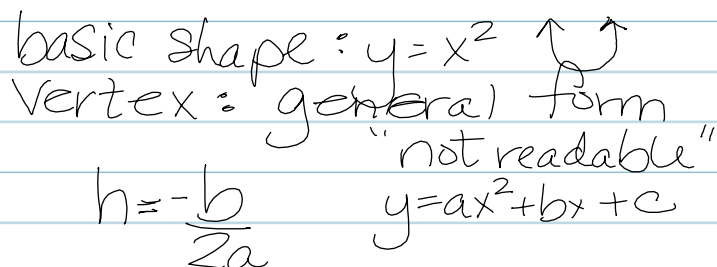 basic shape: y = x²
Vertex: general form
"not readable"
h = -b/2a y = ax² + bx + c